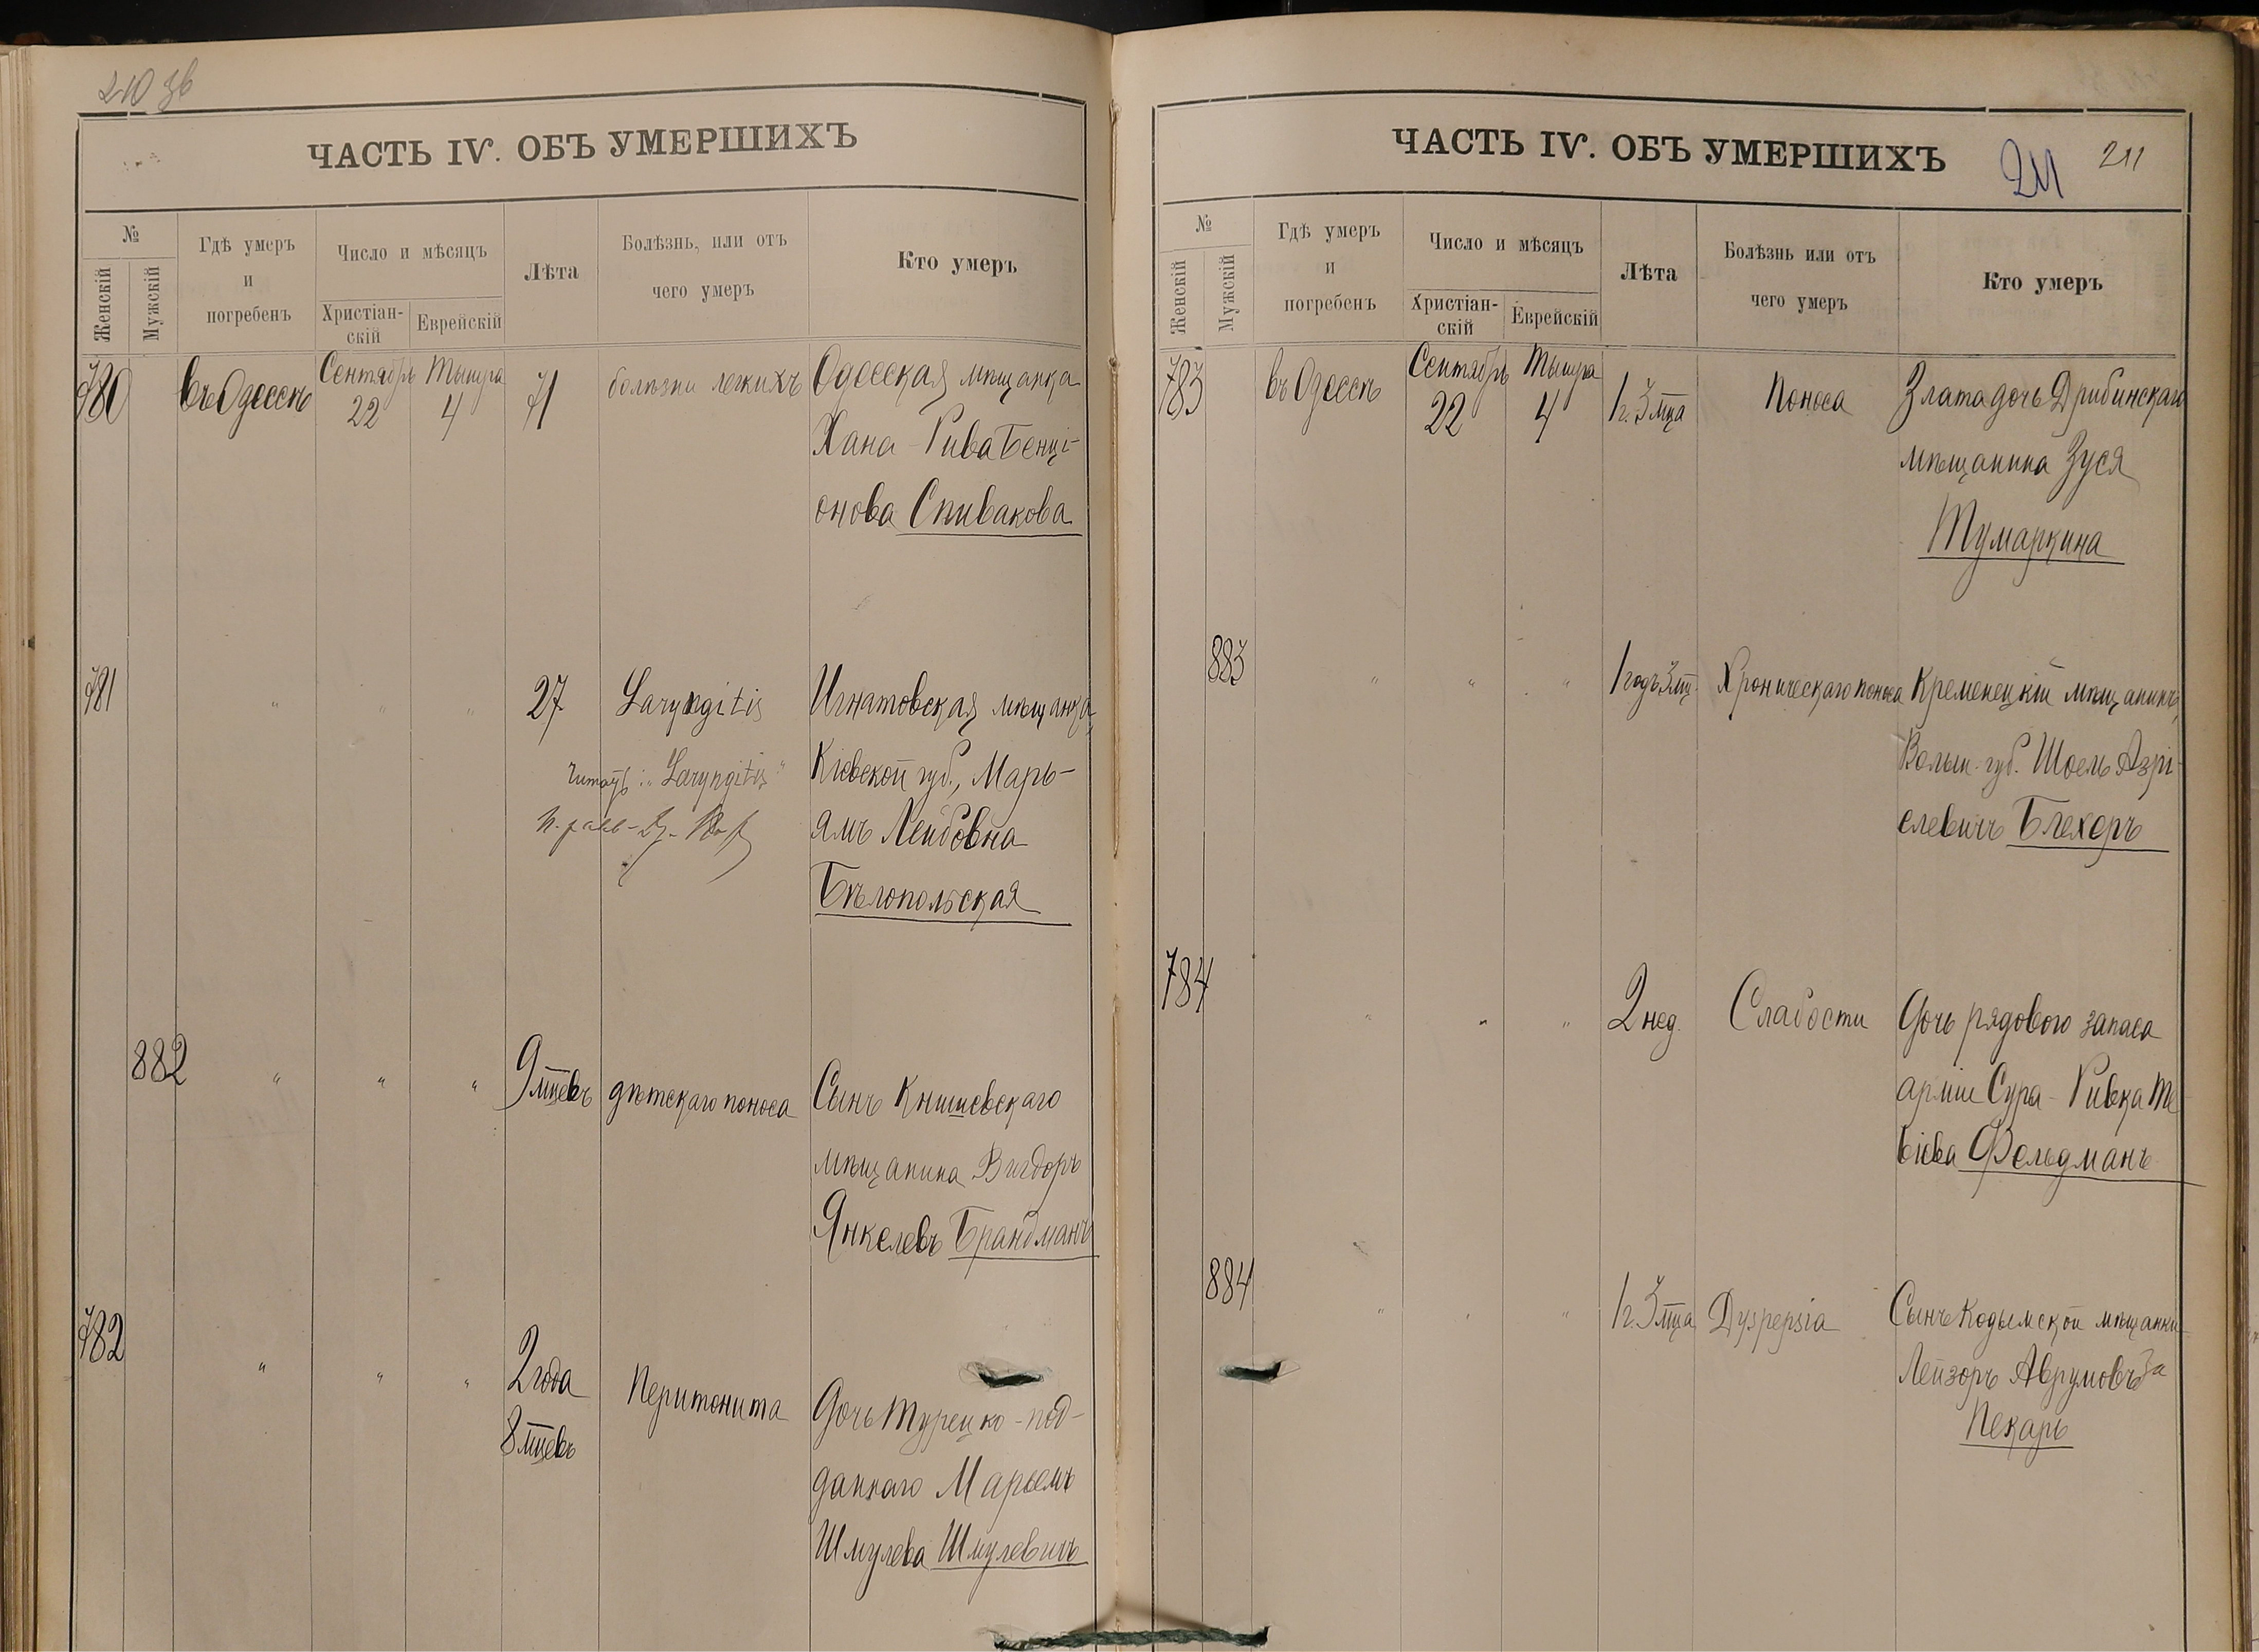 210 зв
ЧАСТЬ IV. ОБЪ УМЕРШИХЪ
№
Женскій
Мужскій
Гдѣ умеръ
и
погребенъ
Число и мѣсяцъ
Христіан-
скій
Еврейскій
Лѣта
Болѣзнь, или отъ
чего умеръ
Кто умеръ
780 въ Одессѣ Сентябрь 22 Тышра 4 71 болѣзни легкихъ Одесская мѣщанка
Хана-Рива Бенці-
онова Спивакова
781 " " " 27 Laryngitis Игнатовская мѣщанка,
Кіевской губ., Марь-
ямъ Лейбовна
Бѣлопольская
"Laryngitis"
882 " " " 9 мцевъ дѣтскаго поноса Сынъ Кишиевскаго
мѣщанина Вигдоръ
Янкелевъ Брандманъ
782 " " " 2 года
8 мцевъ
Перитонита Дочь турецко-под-
даннаго Марьемъ
Шмулева Шмулевичъ
ЧАСТЬ IV. ОБЪ УМЕРШИХЪ
211 211
№
Женскій
Мужскій
Гдѣ умеръ
и
погребенъ
Число и мѣсяцъ
Христіан-
скій
Еврейскій
Лѣта
Болѣзнь или отъ
чего умеръ
Кто умеръ
783 въ Одессѣ Сентябрь 22 Тышра 4 1 г. 3 мца Поноса Злата дочь Дрибинскаго
мѣщанина Зуся
Тумаркина
883 " " " 1 годъ 3 мц. Хроническаго поноса Кременецкій мѣщанинъ,
Волын. губ. Шоель Азрі-
елевичъ Блехеръ
784 " " " 2 нед. Слабости Дочь рядового запаса
арміи Сура-Ривка Те-
віева Фельдманъ
884 " " " 1 г. 3 мца Dyspepsia Сынъ Кодымской мѣщанки
Лейзоръ Аврумовъ
Пекарь